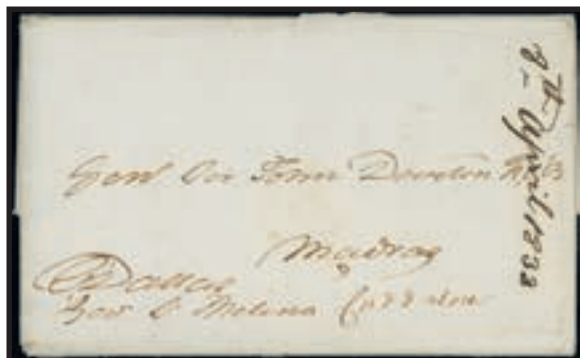 Genl Sir John Doveton KCB
Madras
CDallas
Gov St Helena
April 1833